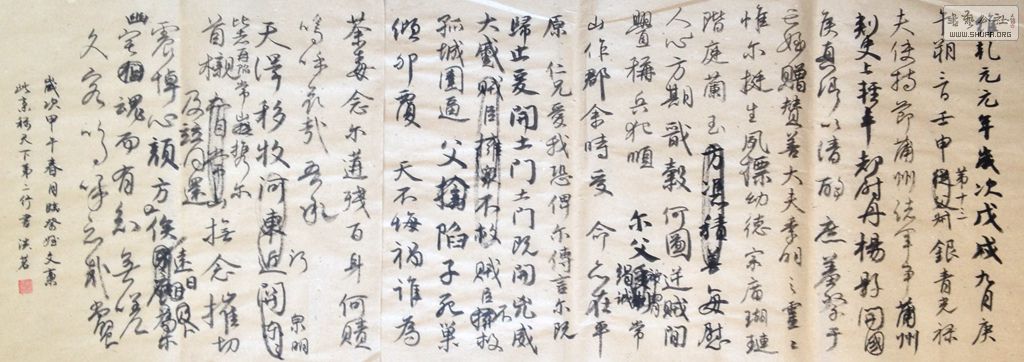 維乾元元年歲次戊戌九月庚
午朔三日壬申第十三從父銀青光祿
夫使持節蒲州諸軍事蒲州
刺史上輕車都尉丹楊縣開國
侯真卿以清酌庶羞祭于
亡姪贈贊善大夫季明之靈
惟爾挺生夙標幼德宗廟瑚璉
階庭蘭玉方憑積善每慰
人心方期戩穀何圖逆賊間
釁稱兵犯順爾父竭誠常
山作郡余時受命亦在平
原仁兄愛我恐俾爾傳言爾既
歸止爰開土門土門既開兇威
大蹙賊臣擁眾不救賊臣不救
孤城圍逼父擒陷子死巢
傾卵覆天不悔禍誰為
荼毒念爾遘殘百身何贖
嗚呼哀哉吾承
天澤移牧河東近河關泉明
比者再陷常山攜爾
首櫬及茲同還撫念摧切
震悼心顏方俟遠日
幽宅魂而有知無嗟
久客嗚呼哀哉尚饗
歲次甲午春月臨祭姪文稿
此京稱天下第二行書洪茗
書法公社
WWW.SHUFA.ORG